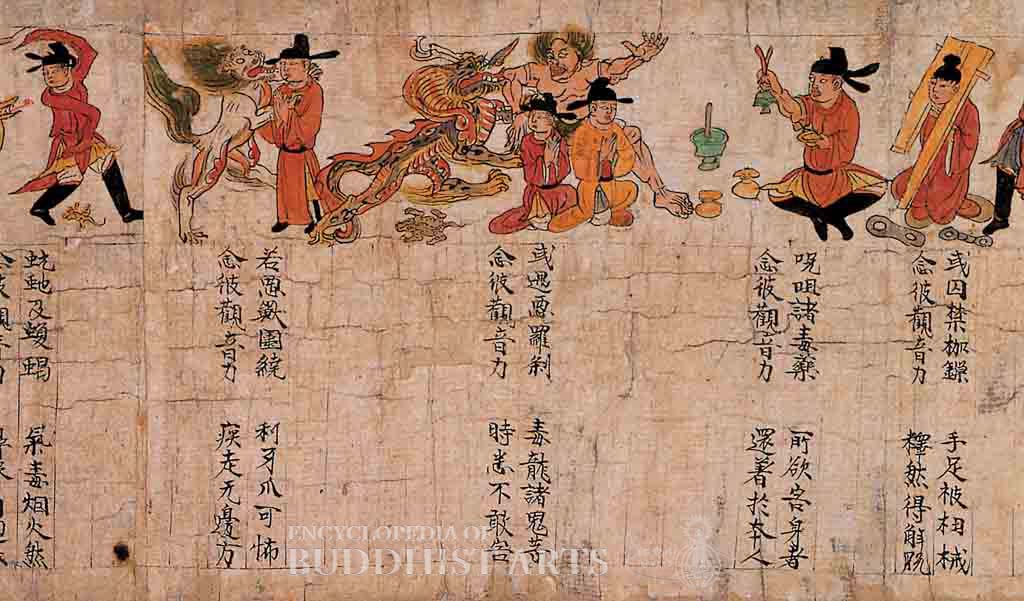 或囚禁枷鏁 手足被杻械
念彼觀音力 釋然得解脫
呪咀諸毒藥 所欲害身者
念彼觀音力 還著於本人
或遇惡羅刹 毒龍諸鬼等
念彼觀音力 時悉不敢害
若惡獸圍繞 利牙爪可怖
念彼觀音力 疾走无邊方
蚖虵及蝮蝎 氣毒烟火然
ENCYCLOPEDIA OF
BUDDHIST ARTS